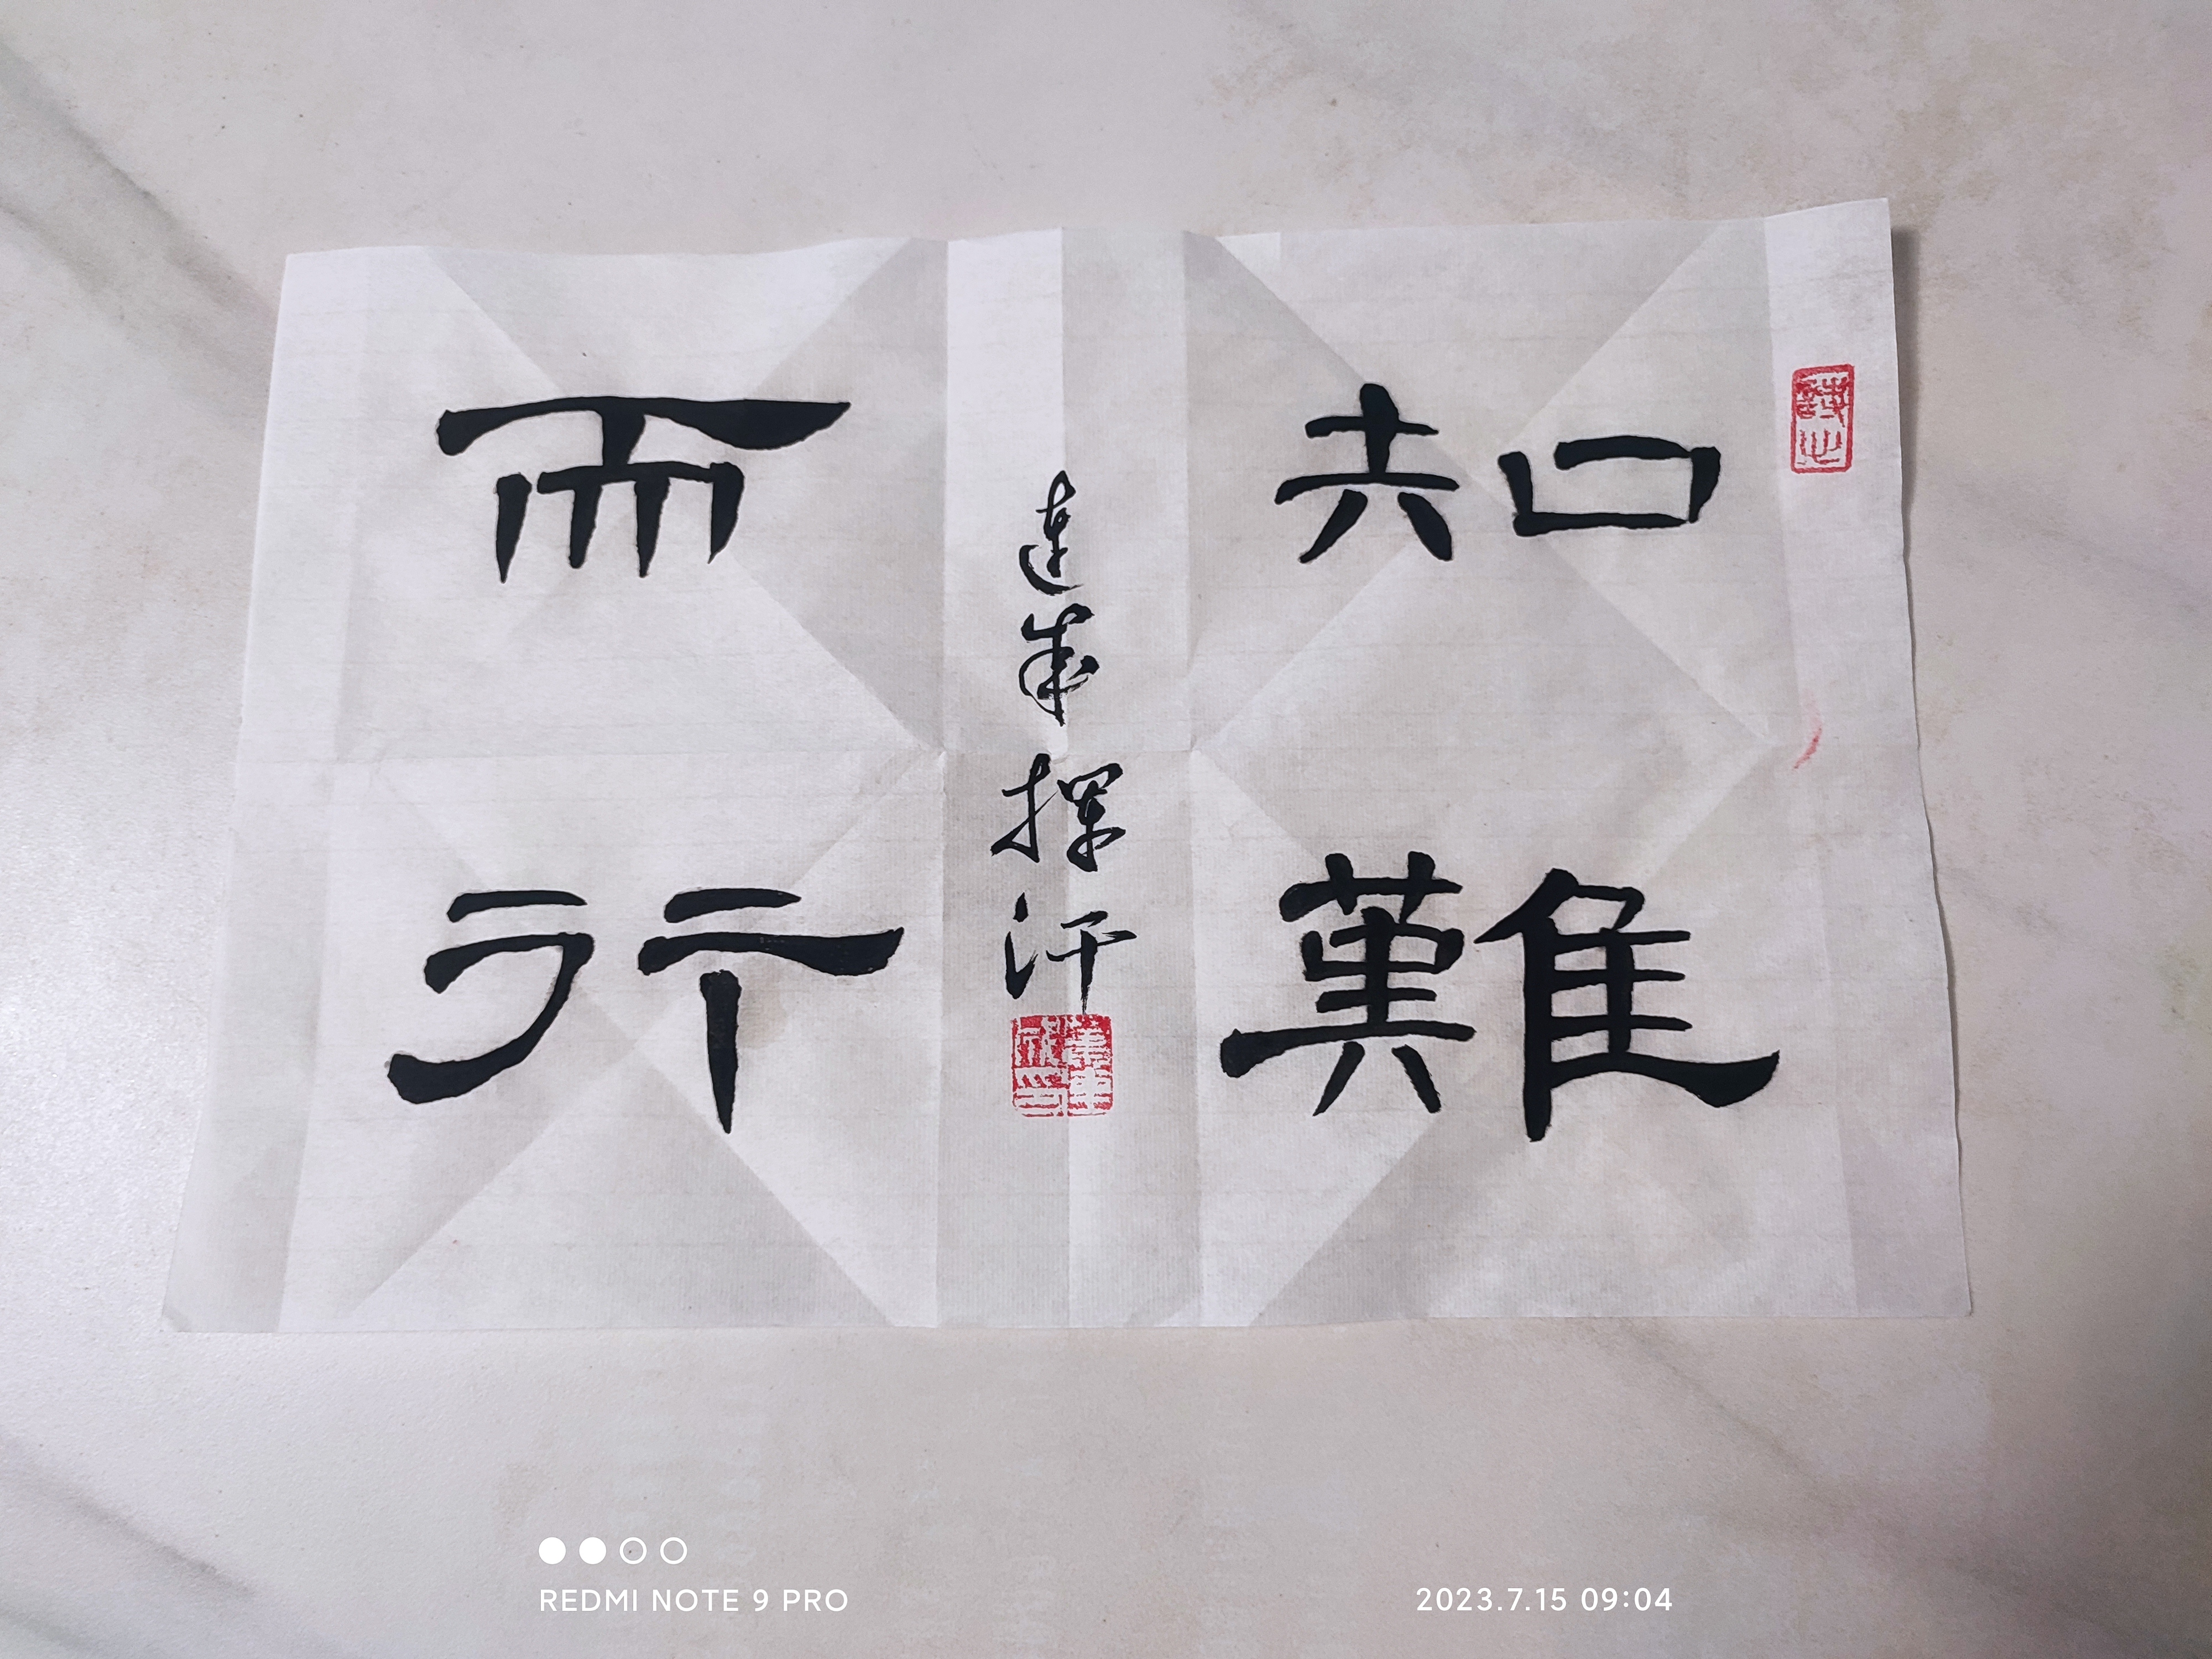 知難
而行
連成揮汗
REDMI NOTE 9 PRO
2023.7.15 09:04